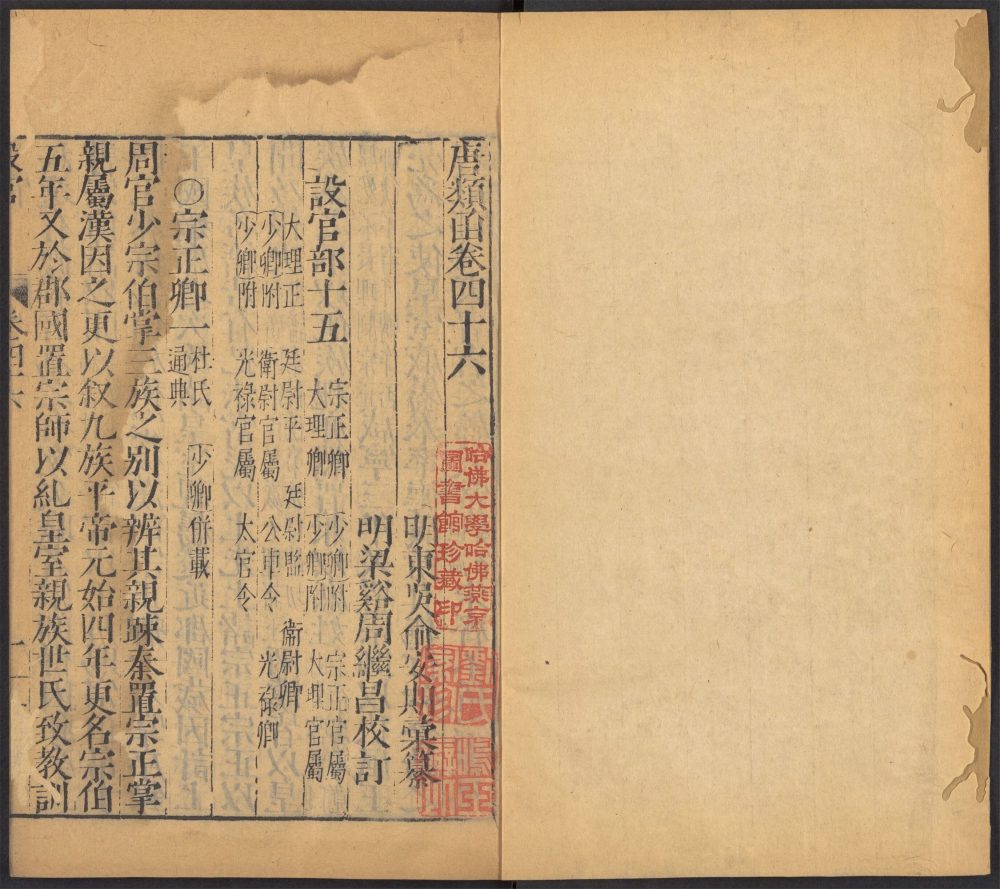 唐類函卷四十六
明東吳俞安期彙纂
明梁谿周繼昌校訂
設官部十五
宗正卿 少卿附 宗正官屬
大理卿 少卿附 大理官屬
大理正 廷尉平 廷尉監 衛尉卿
少卿附 衛尉官屬 公車令 光祿卿
少卿附 光祿官屬 太官令
○宗正卿一 杜氏通典 少卿併載
周官少宗伯掌三族之别以辨其親疎秦置宗正掌
親屬漢因之更以叙九族平帝元始四年更名宗伯
五年又於郡國置宗師以糾皇室親族世氏致教訓
設官 卷四十六 一
哈佛大學哈佛燕京
圖書館珍藏印